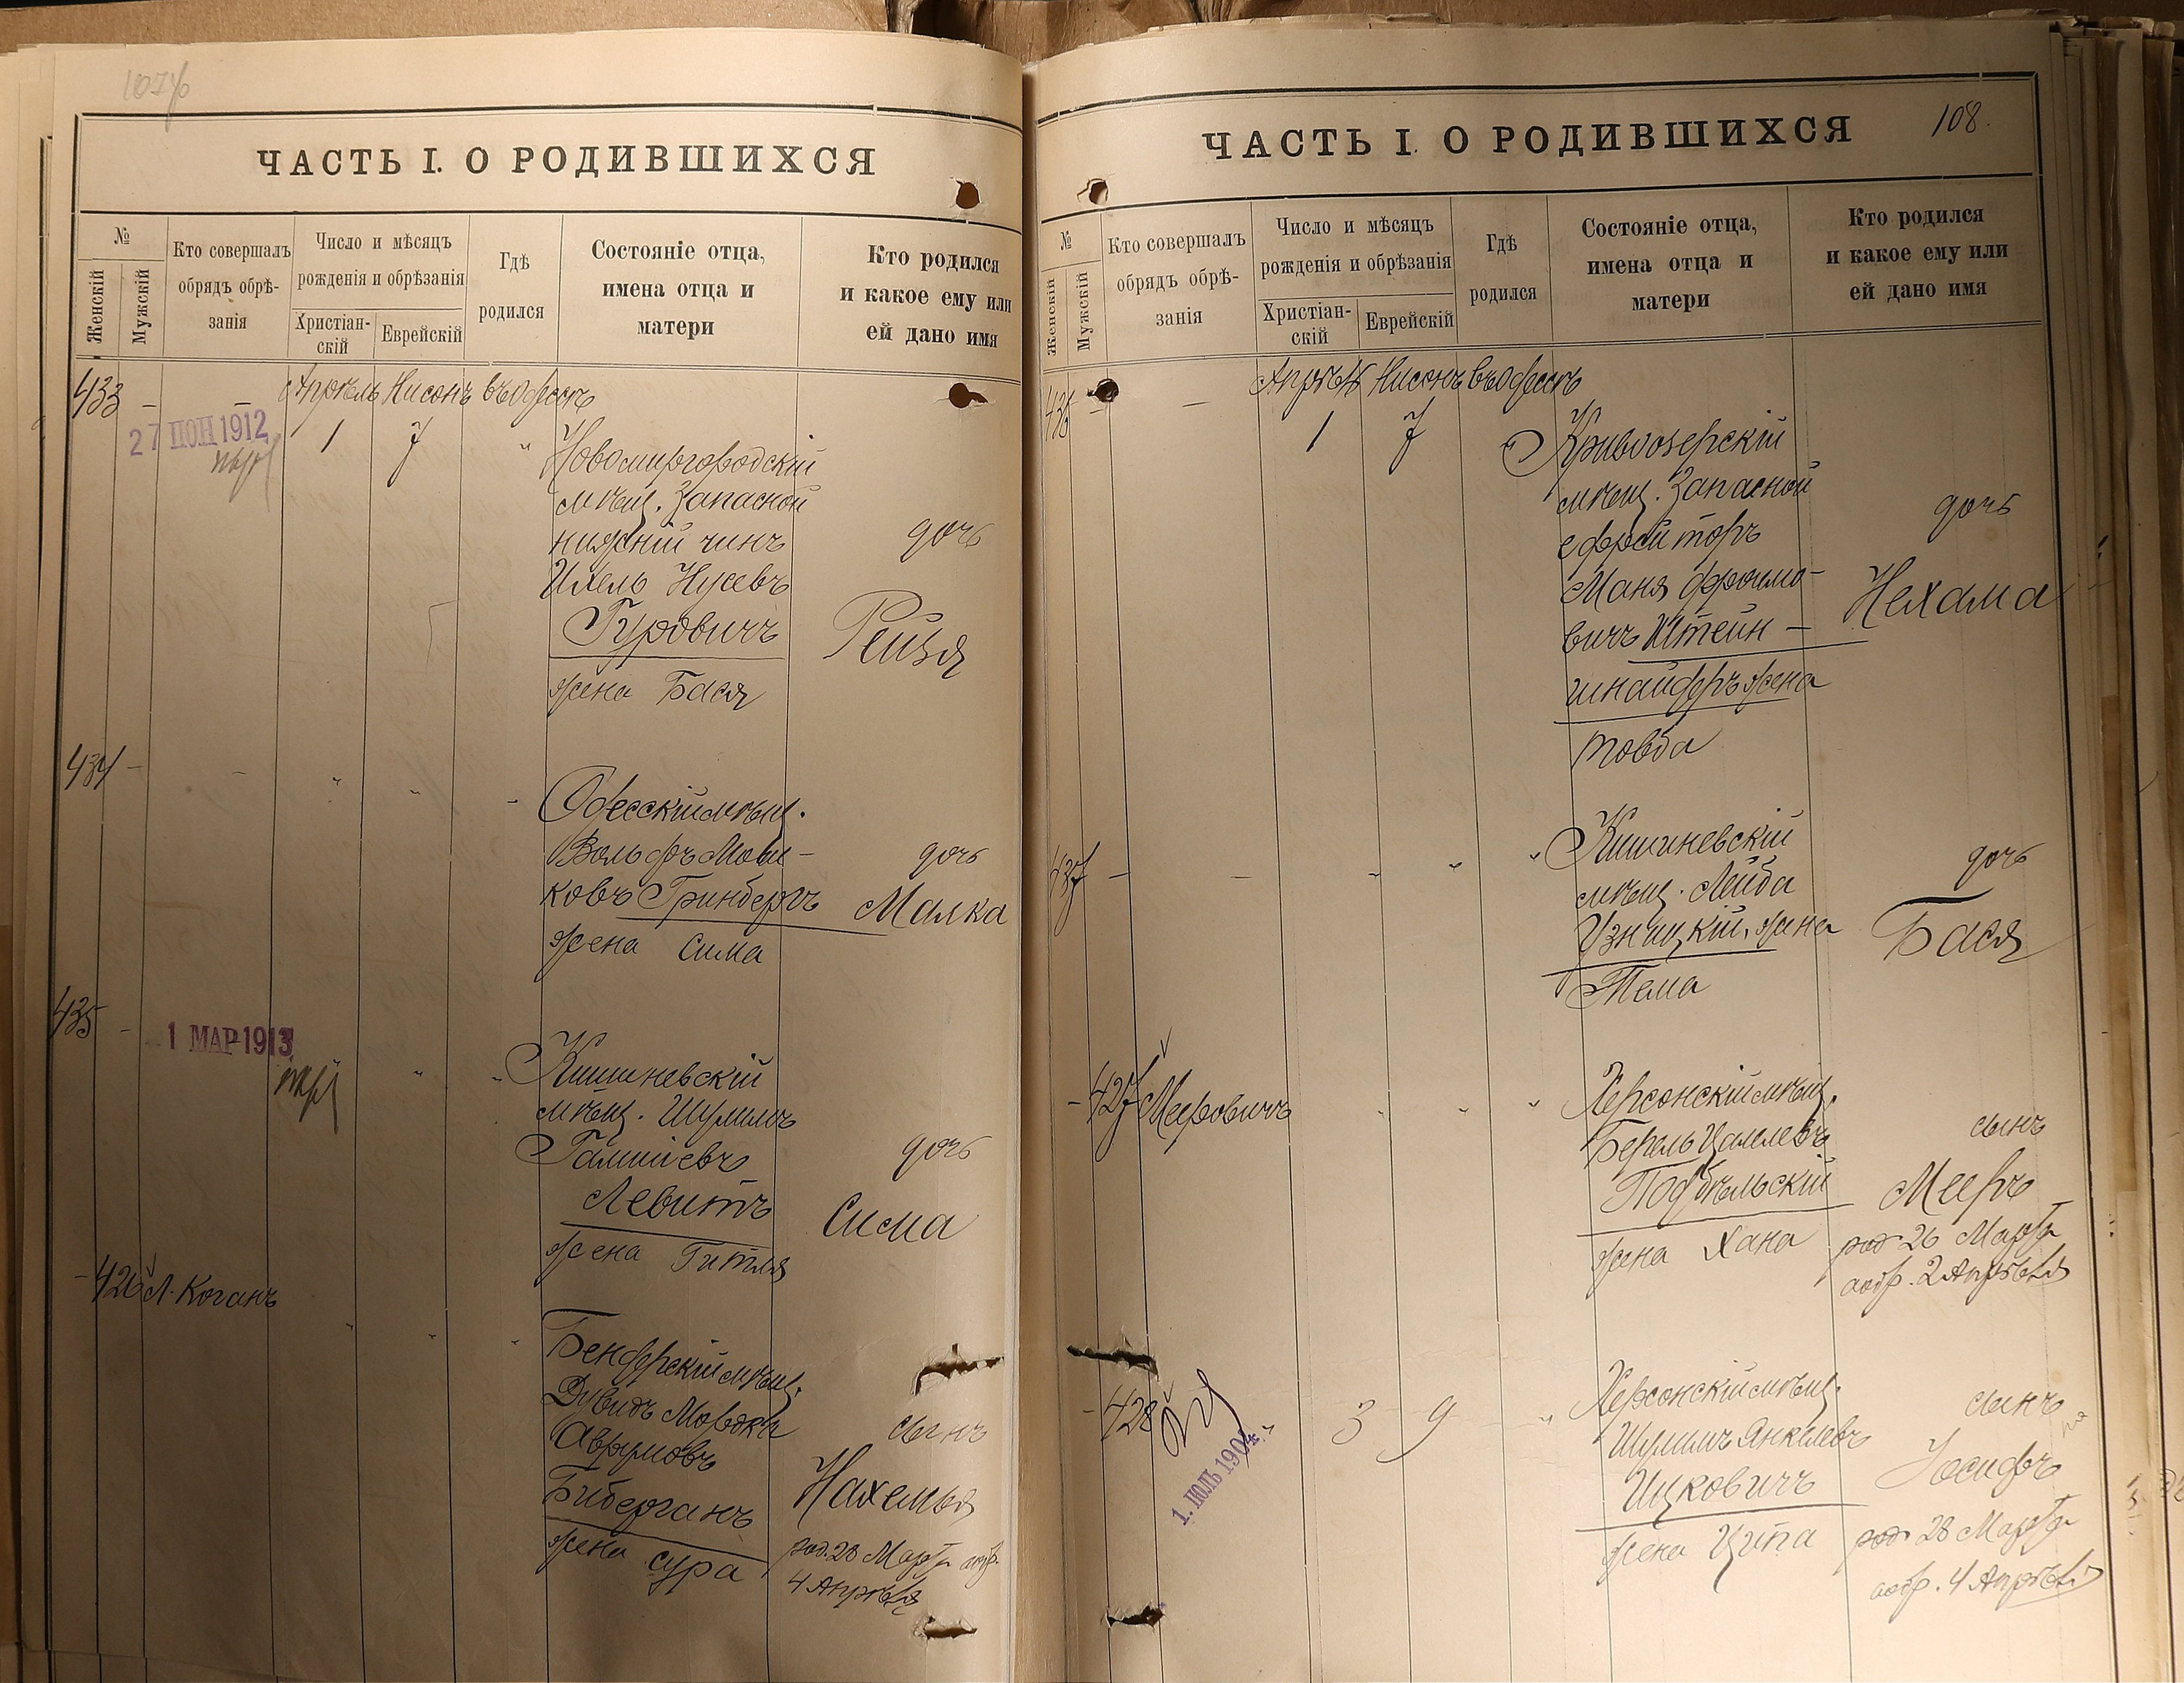 107 об
ЧАСТЬ I. О РОДИВШИХСЯ
№
Женскій
Мужскій
Кто совершалъ
обрядъ обрѣ-
занія
Число и мѣсяцъ
рожденія и обрѣзанія
Христіан-
скій
Еврейскій
Гдѣ
родился
Состояніе отца,
имена отца и
матери
Кто родился
и какое ему или
ей дано имя
433 - - Апрѣль Нисонъ въ Одессѣ
27 ІЮН 1912
1 7 "
Новомиргородскій
мѣщ. Запасной
нижній чинъ
Ихель Нусевъ
Гуровичъ
жена Бася
дочь
Рейзя
434 - - " " "
Одесскій мѣщ.
Вольфъ Мош-
ковъ Гринбергъ
жена Сима
дочь
Малка
435 -
1 МАР 1913
" " "
Кишиневскій
мѣщ. Шулимъ
Левитъ
жена Гитля
дочь
Сима
- 426 Л. Коганъ " " "
Бендерскій мѣщ.
Дувидъ Мордко
Аврумовъ
Биберганъ
жена Сура
сынъ
Нахемья
род. 28 Марта обр.
4 Апрѣля
108.
ЧАСТЬ I. О РОДИВШИХСЯ
№
Женскій
Мужскій
Кто совершалъ
обрядъ обрѣ-
занія
Число и мѣсяцъ
рожденія и обрѣзанія
Христіан-
скій
Еврейскій
Гдѣ
родился
Состояніе отца,
имена отца и
матери
Кто родился
и какое ему или
ей дано имя
436 - - Апрѣль Нисонъ въ Одессѣ
1 7 "
Кривоозерскій
мѣщ. Запасной
ефрейторъ
Маня Фроимо-
вичъ Штейн-
шнайдеръ жена
Товба
дочь
Нехама
437 - - " " "
Кишиневскій
мѣщ. Лейба
жена
Тема
дочь
Бася
- 427 Мееровичъ " " "
Херсонскій мѣщ.
Берель Цалелевъ
Подбѣльскій
жена Хана
сынъ
Мееръ
род. 26 Марта
обр. 2 Апрѣля
- 428 " 3 9 "
1. ІЮЛЬ 1904
Херсонскій мѣщ.
Шулимъ Янкелевъ
Ицковичъ
жена Ципа
сынъ
Іосифъ
род. 28 Марта
обр. 4 Апрѣля